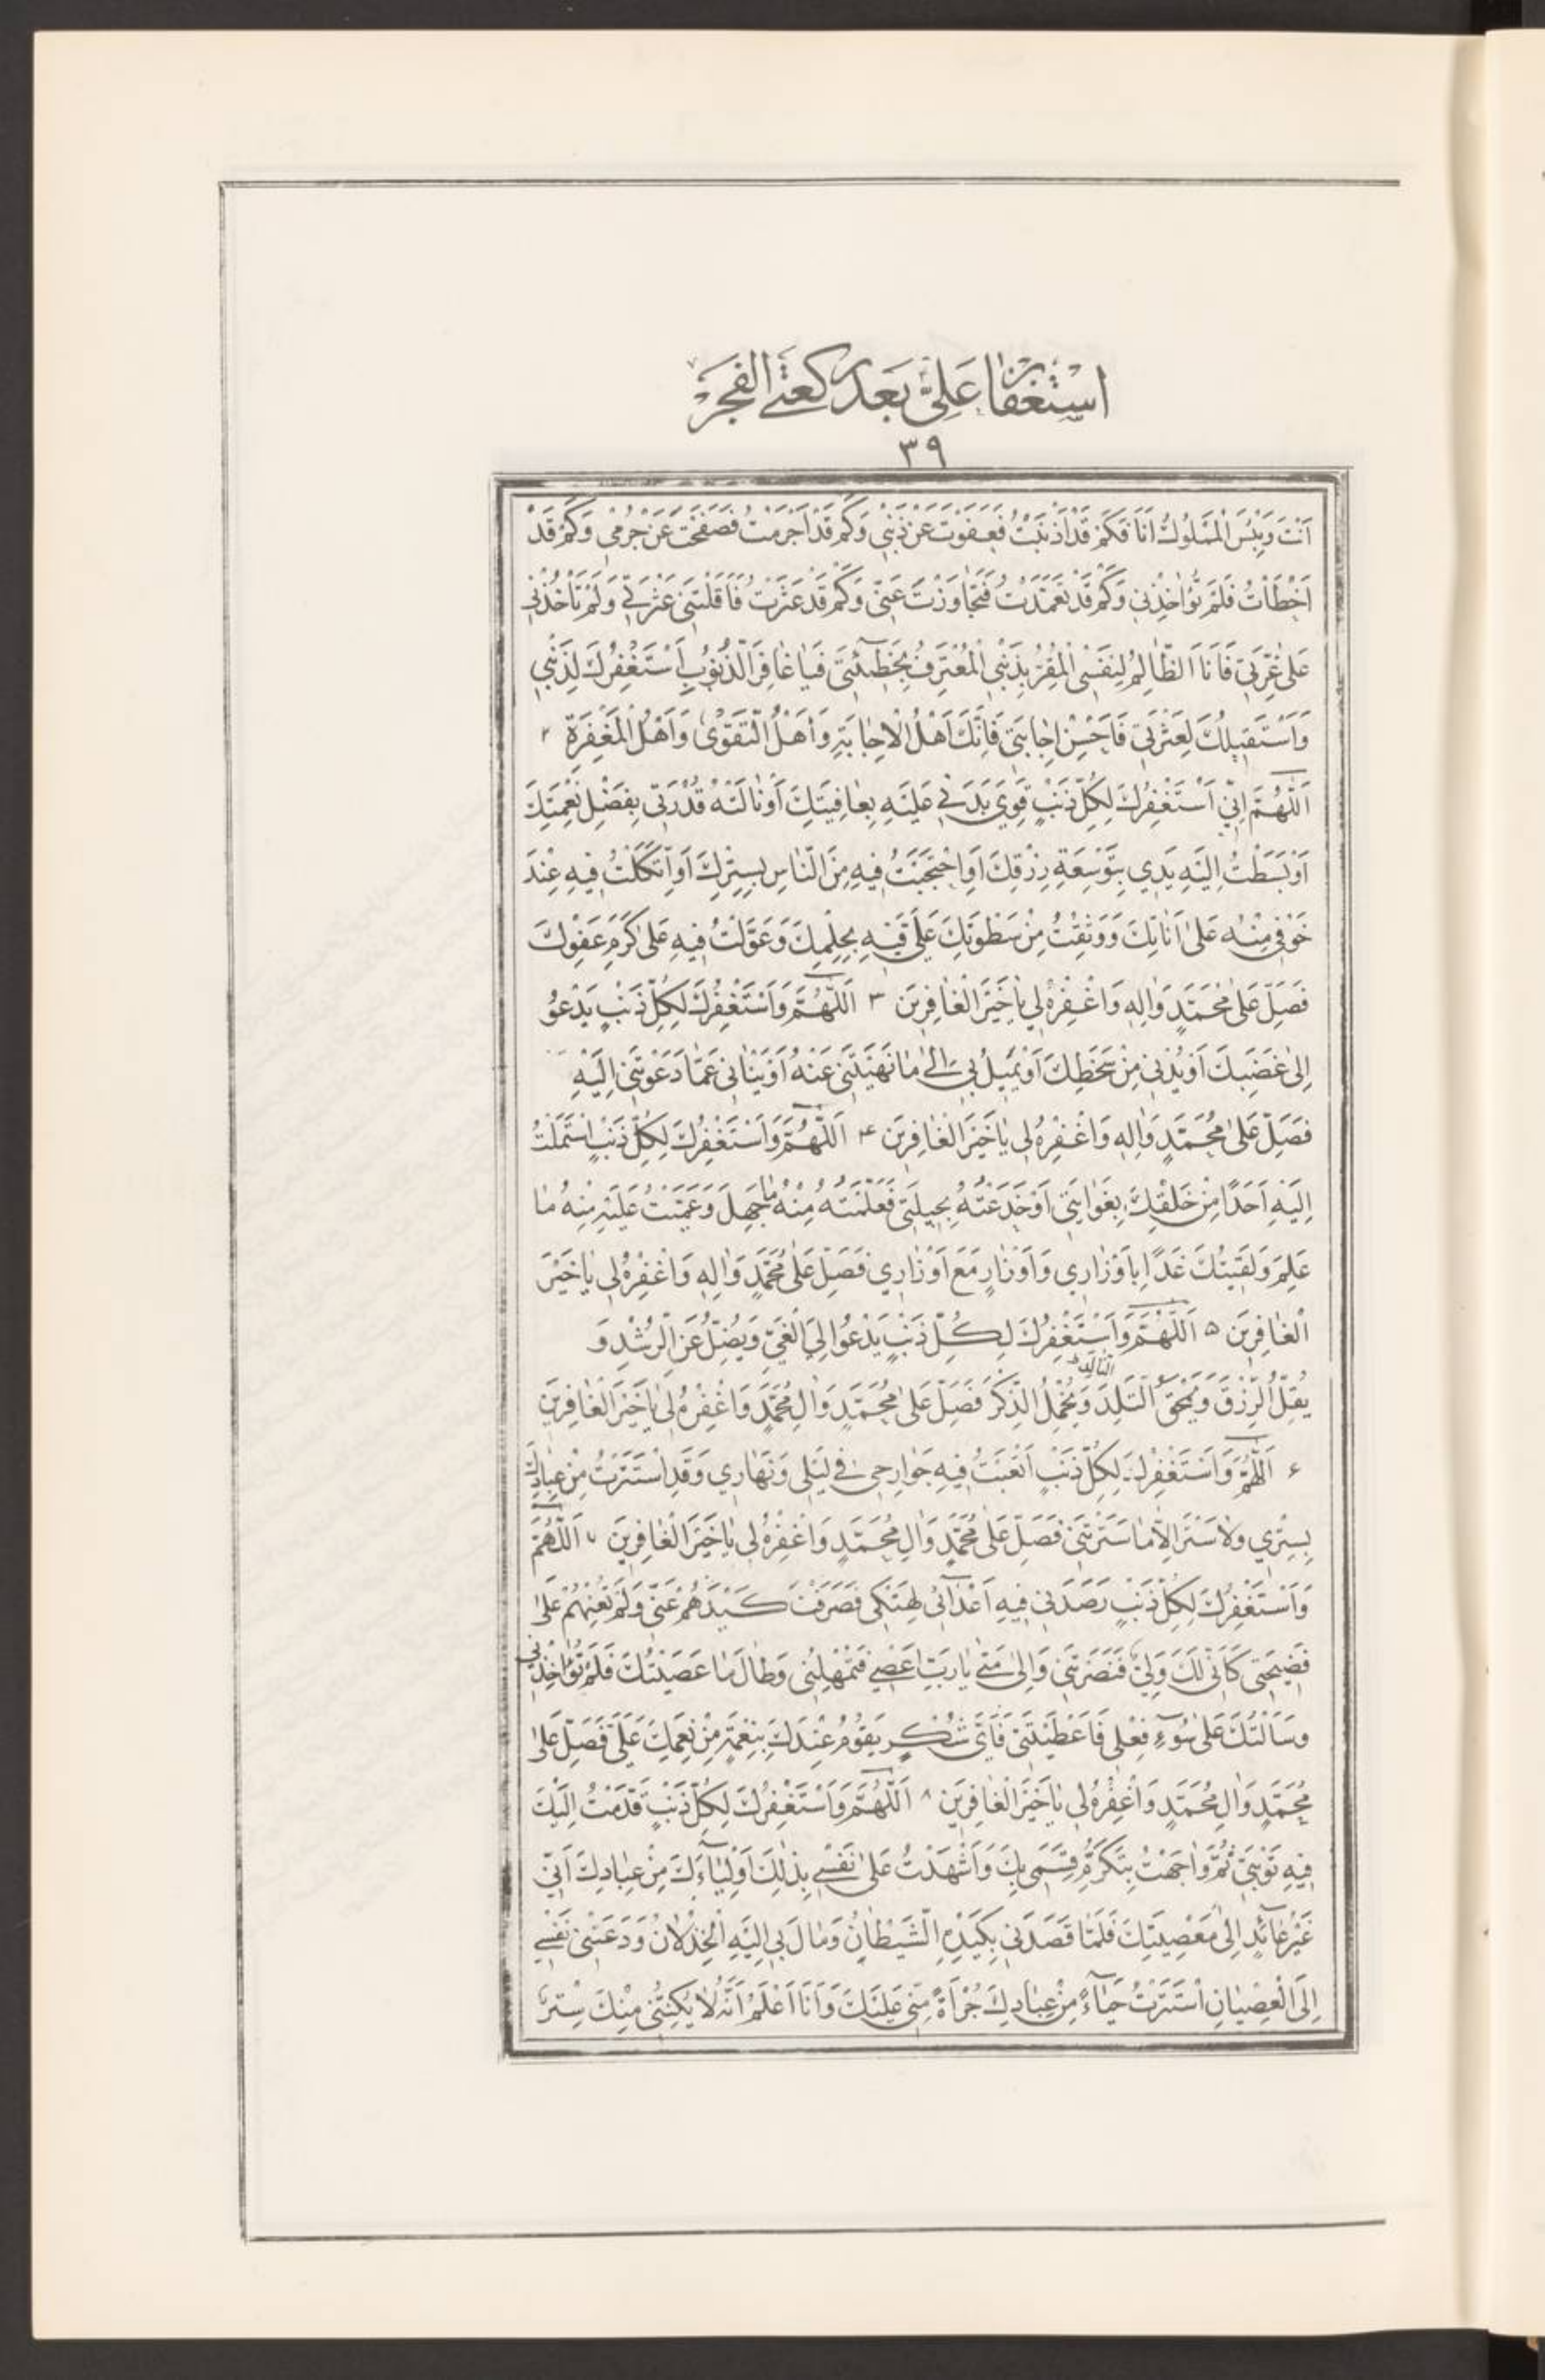 اِسْتِغْفَارُ عَلِيٍّ بَعْدَ رَكْعَتَيِ الْفَجْرِ
٣٩
اَنْتَ وَبِئْسَ الْمَمْلُوكُ اَنَا فَكَمْ قَدْ اَذْنَبْتُ فَعَفَوْتَ عَنْ ذَنْبِي وَكَمْ قَدْ اَجْرَمْتُ فَصَفَحْتَ عَنْ جُرْمِي وَكَمْ قَدْ
اَخْطَاْتُ فَلَمْ تُؤَاخِذْنِي وَكَمْ قَدْ تَعَمَّدْتُ فَتَجَاوَزْتَ عَنِّي وَكَمْ قَدْ عَثَرْتُ فَاَقَلْتَنِي عَثْرَتِي وَلَمْ تَأْخُذْنِي
عَلىٰ غِرَّتِي فَاَنَا الظَّالِمُ لِنَفْسِي الْمُقِرُّ بِذَنْبِي الْمُعْتَرِفُ بِخَطِيئَتِي فَيَا غَافِرَ الذُّنُوبِ اَسْتَغْفِرُكَ لِذَنْبِي
وَاَسْتَقِيلُكَ لِعَثْرَتِي فَاَحْسِنْ اِجَابَتِي فَاِنَّكَ اَهْلُ الْاِجَابَةِ وَاَهْلُ التَّقْوىٰ وَاَهْلُ الْمَغْفِرَةِ ٢
اَللّٰهُمَّ اِنِّي اَسْتَغْفِرُكَ لِكُلِّ ذَنْبٍ قَوِيَ بَدَنِي عَلَيْهِ بِعَافِيَتِكَ اَوْ نَالَتْهُ قُدْرَتِي بِفَضْلِ نِعْمَتِكَ
اَوْ بَسَطْتُ اِلَيْهِ يَدِي بِتَوْسِعَةِ رِزْقِكَ اَوِ احْتَجَبْتُ فِيهِ مِنَ النَّاسِ بِسِتْرِكَ اَوِ اتَّكَلْتُ فِيهِ عِنْدَ
خَوْفِي مِنْهُ عَلىٰ اَنَاتِكَ وَوَثِقْتُ مِنْ سَطْوَتِكَ عَلَيَّ فِيهِ بِحِلْمِكَ وَعَوَّلْتُ فِيهِ عَلىٰ كَرَمِ عَفْوِكَ
فَصَلِّ عَلىٰ مُحَمَّدٍ وَاٰلِهِ وَاغْفِرْهُ لِي يَا خَيْرَ الْغَافِرِينَ ٣ اَللّٰهُمَّ وَاَسْتَغْفِرُكَ لِكُلِّ ذَنْبٍ يَدْعُو
اِلىٰ غَضَبِكَ اَوْ يُدْنِي مِنْ سَخَطِكَ اَوْ يَمِيلُ بِي اِلىٰ مَا نَهَيْتَنِي عَنْهُ اَوْ يَنْاٰنِي عَمَّا دَعَوْتَنِي اِلَيْهِ
فَصَلِّ عَلىٰ مُحَمَّدٍ وَاٰلِهِ وَاغْفِرْهُ لِي يَا خَيْرَ الْغَافِرِينَ ۴ اَللّٰهُمَّ وَاَسْتَغْفِرُكَ لِكُلِّ ذَنْبٍ اسْتَمَلْتُ
اِلَيْهِ اَحَدًا مِنْ خَلْقِكَ بِغَوَايَتِي اَوْ خَدَعْتُهُ بِحِيلَتِي فَعَلَّمْتُهُ مِنْهُ مَا جَهِلَ وَعَمَّيْتُ عَلَيْهِ مِنْهُ مَا
عَلِمَ وَلَقِيتُكَ غَدًا بِاَوْزَارِي وَاَوْزَارٍ مَعَ اَوْزَارِي فَصَلِّ عَلىٰ مُحَمَّدٍ وَاٰلِهِ وَاغْفِرْهُ لِي يَا خَيْرَ
الْغَافِرِينَ ۵ اَللّٰهُمَّ وَاَسْتَغْفِرُكَ لِكُلِّ ذَنْبٍ يَدْعُو اِلَى الْغَيِّ وَيُضِلُّ عَنِ الرُّشْدِ وَ
يُقِلُّ الرِّزْقَ وَيَمْحَقُ التَّلِدَ وَيُخْمِلُ الذِّكْرَ فَصَلِّ عَلىٰ مُحَمَّدٍ وَاٰلِ مُحَمَّدٍ وَاغْفِرْهُ لِي يَا خَيْرَ الْغَافِرِينَ
التالد
۶ اَللّٰهُمَّ وَاَسْتَغْفِرُكَ لِكُلِّ ذَنْبٍ اَتْعَبْتُ فِيهِ جَوَارِحِي فِي لَيْلِي وَنَهَارِي وَقَدِ اسْتَتَرْتُ مِنْ عِبَادِكَ
بِسِتْرِي وَلَا سَتْرَ اِلَّا مَا سَتَرْتَنِي فَصَلِّ عَلىٰ مُحَمَّدٍ وَاٰلِ مُحَمَّدٍ وَاغْفِرْهُ لِي يَا خَيْرَ الْغَافِرِينَ ٧ اَللّٰهُمَّ
وَاَسْتَغْفِرُكَ لِكُلِّ ذَنْبٍ رَصَدَنِي فِيهِ اَعْدَائِي لِهَتْكِي فَصَرَفْتَ كَيْدَهُمْ عَنِّي وَلَمْ تُعِنْهُمْ عَلىٰ
فَضِيحَتِي كَاَنِّي لَكَ وَلِيٌّ فَنَصَرْتَنِي وَاِلىٰ مَتىٰ يَا رَبِّ اَعْصِي فَتُمْهِلُنِي وَطَالَ مَا عَصَيْتُكَ فَلَمْ تُؤَاخِذْنِي
وَسَاَلْتُكَ عَلىٰ سُوءِ فِعْلِي فَاَعْطَيْتَنِي فَاَيُّ شُكْرٍ يَقُومُ عِنْدَكَ بِنِعْمَةٍ مِنْ نِعَمِكَ عَلَيَّ فَصَلِّ عَلىٰ
مُحَمَّدٍ وَاٰلِ مُحَمَّدٍ وَاغْفِرْهُ لِي يَا خَيْرَ الْغَافِرِينَ ٨ اَللّٰهُمَّ وَاَسْتَغْفِرُكَ لِكُلِّ ذَنْبٍ قَدَّمْتُ اِلَيْكَ
فِيهِ تَوْبَتِي ثُمَّ وَاجَهْتُ بِتَكَرُّمِ قَسَمِي بِكَ وَاَشْهَدْتُ عَلىٰ نَفْسِي بِذٰلِكَ اَوْلِيَاءَكَ مِنْ عِبَادِكَ اَنِّي
غَيْرُ عَائِدٍ اِلىٰ مَعْصِيَتِكَ فَلَمَّا قَصَدَنِي بِكَيْدِهِ الشَّيْطَانُ وَمَالَ بِي اِلَيْهِ الْخِذْلَانُ وَدَعَتْنِي نَفْسِي
اِلَى الْعِصْيَانِ اسْتَتَرْتُ حَيَاءً مِنْ عِبَادِكَ جُرْاَةً مِنِّي عَلَيْكَ وَاَنَا اَعْلَمُ اَنَّهُ لَا يَكُنُّنِي مِنْكَ سِتْرٌ